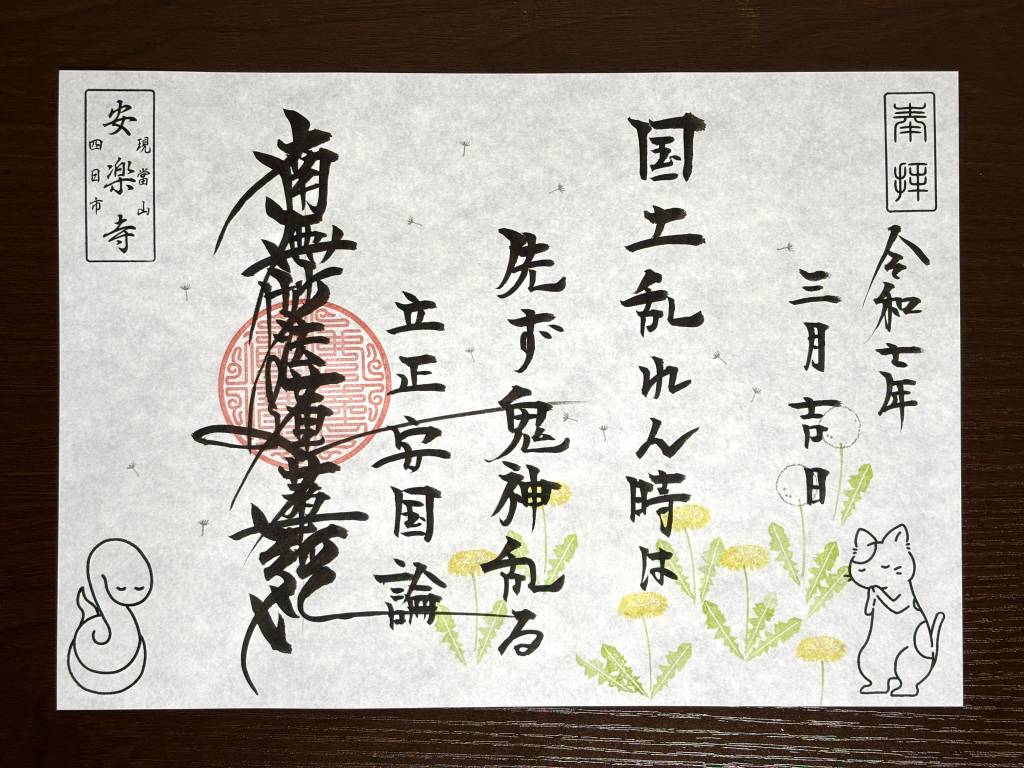 奉拝
令和七年
三月吉日
国土乱れん時は
先ず鬼神乱る
立正安国論
南無妙法蓮華経
現當山
安楽寺
四日市